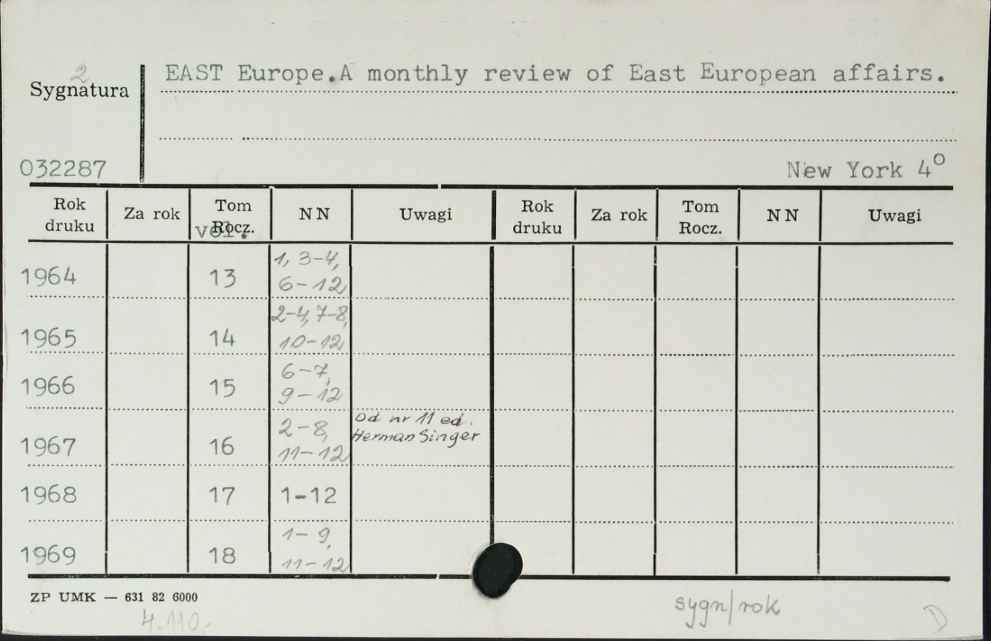 2
EAST Europe.A monthly review of East European affairs.
Sygnatura
032287
New York 4°
Rok druku Za rok Tom Rocz. vol. NN Uwagi Rok druku Za rok Tom Rocz. NN Uwagi
1964 13 1, 3-4, 6-12
1965 14 2-4, 7-8, 10-12
1966 15 6-7, 9-12
1967 16 2-8, 11-12 Od nr 11 ed. Herman Singer
1968 17 1-12
1969 18 1-9, 11-12
ZP UMK — 631 82 6000
4.110.-
sygn/rok
D